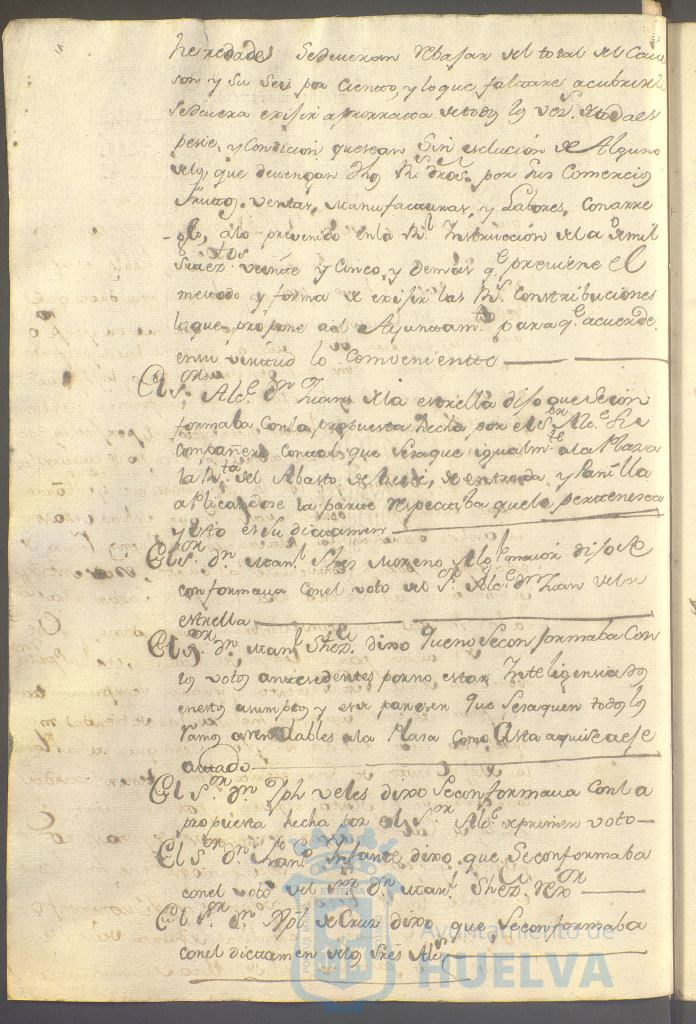 heredades se deveran revajar del total del Cau
son y su seis por ciento, y lo que faltare a cubrirse
se devera exijir a prorrata de todos los vezs. de toda es
pecie, y Condicion que sean sin esclución de Alguno
de los que devengan dhos Rs. dros. por sus Comercios
frutos, ventas, Manufacturas, y Labores, Con arre
glo, a lo prevenido en la Rl. Instrucción de la de mil
setezos. veinte y Cinco, y demas qe. previene el
metodo y forma de exijir las Rs. Contribuciones
lo que propone al Ayuntamto. para qe. acuerde
en su virtud lo Comveniente
El Sor. Alce. Dn. Juan de la estrella dijo que se con
formaba Con la propuesta hecha por el Sor. Alce. su
Compañero Con tal que se saque igualmte. a la Plaza
la Rta. del Abasto de de entrada y Panilla
aplicandose la parte respectiba que le pertenesca
y esto es su dictamen
El Sor. Dn. Manl. Shez Moreno Algl. maior dijo se
conformava con el voto del Sr. Alce. Dn. Juan de la
estrella
El Sor. Dn. Manl. Shez. dixo que no se conformaba Con
los votos antesedentes por no estar Inteligensiado
en estos asumptos y es de pareser que se saquen todos los
ramos arrendables a la Plaza Como asta aqui se a es
autado
El Sor. Dn. Jph veles dixo se conformava con la
propuesta hecha por el Sor. Alce. de primer voto
El Sor. Dn. Franco. Infante dixo que se conformaba
con el voto del Sor. Dn. Manl. Shez. Rexor
El Sor. Dn. de Cruz dixo que se conformaba
con el dictamen de los Sres Ales
Ayuntamiento de
HUELVA